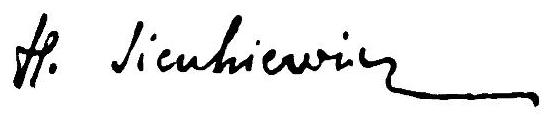 H. Sienkiewicz